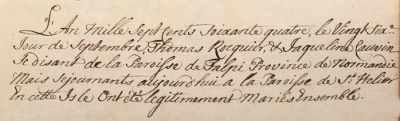 L'An Mille Sept Cents Soixante quatre, le Vingt Six.e
Jour de Septembre, Thomas Rocquier, & Jaqueline Cauvin
Se disant de la Paroisse de Falpi Province de Normandie
Mais Sejournants aujourd'hui a la Paroisse de St. Helier
En cette Isle Ont été légitimement Mariés Ensemble.